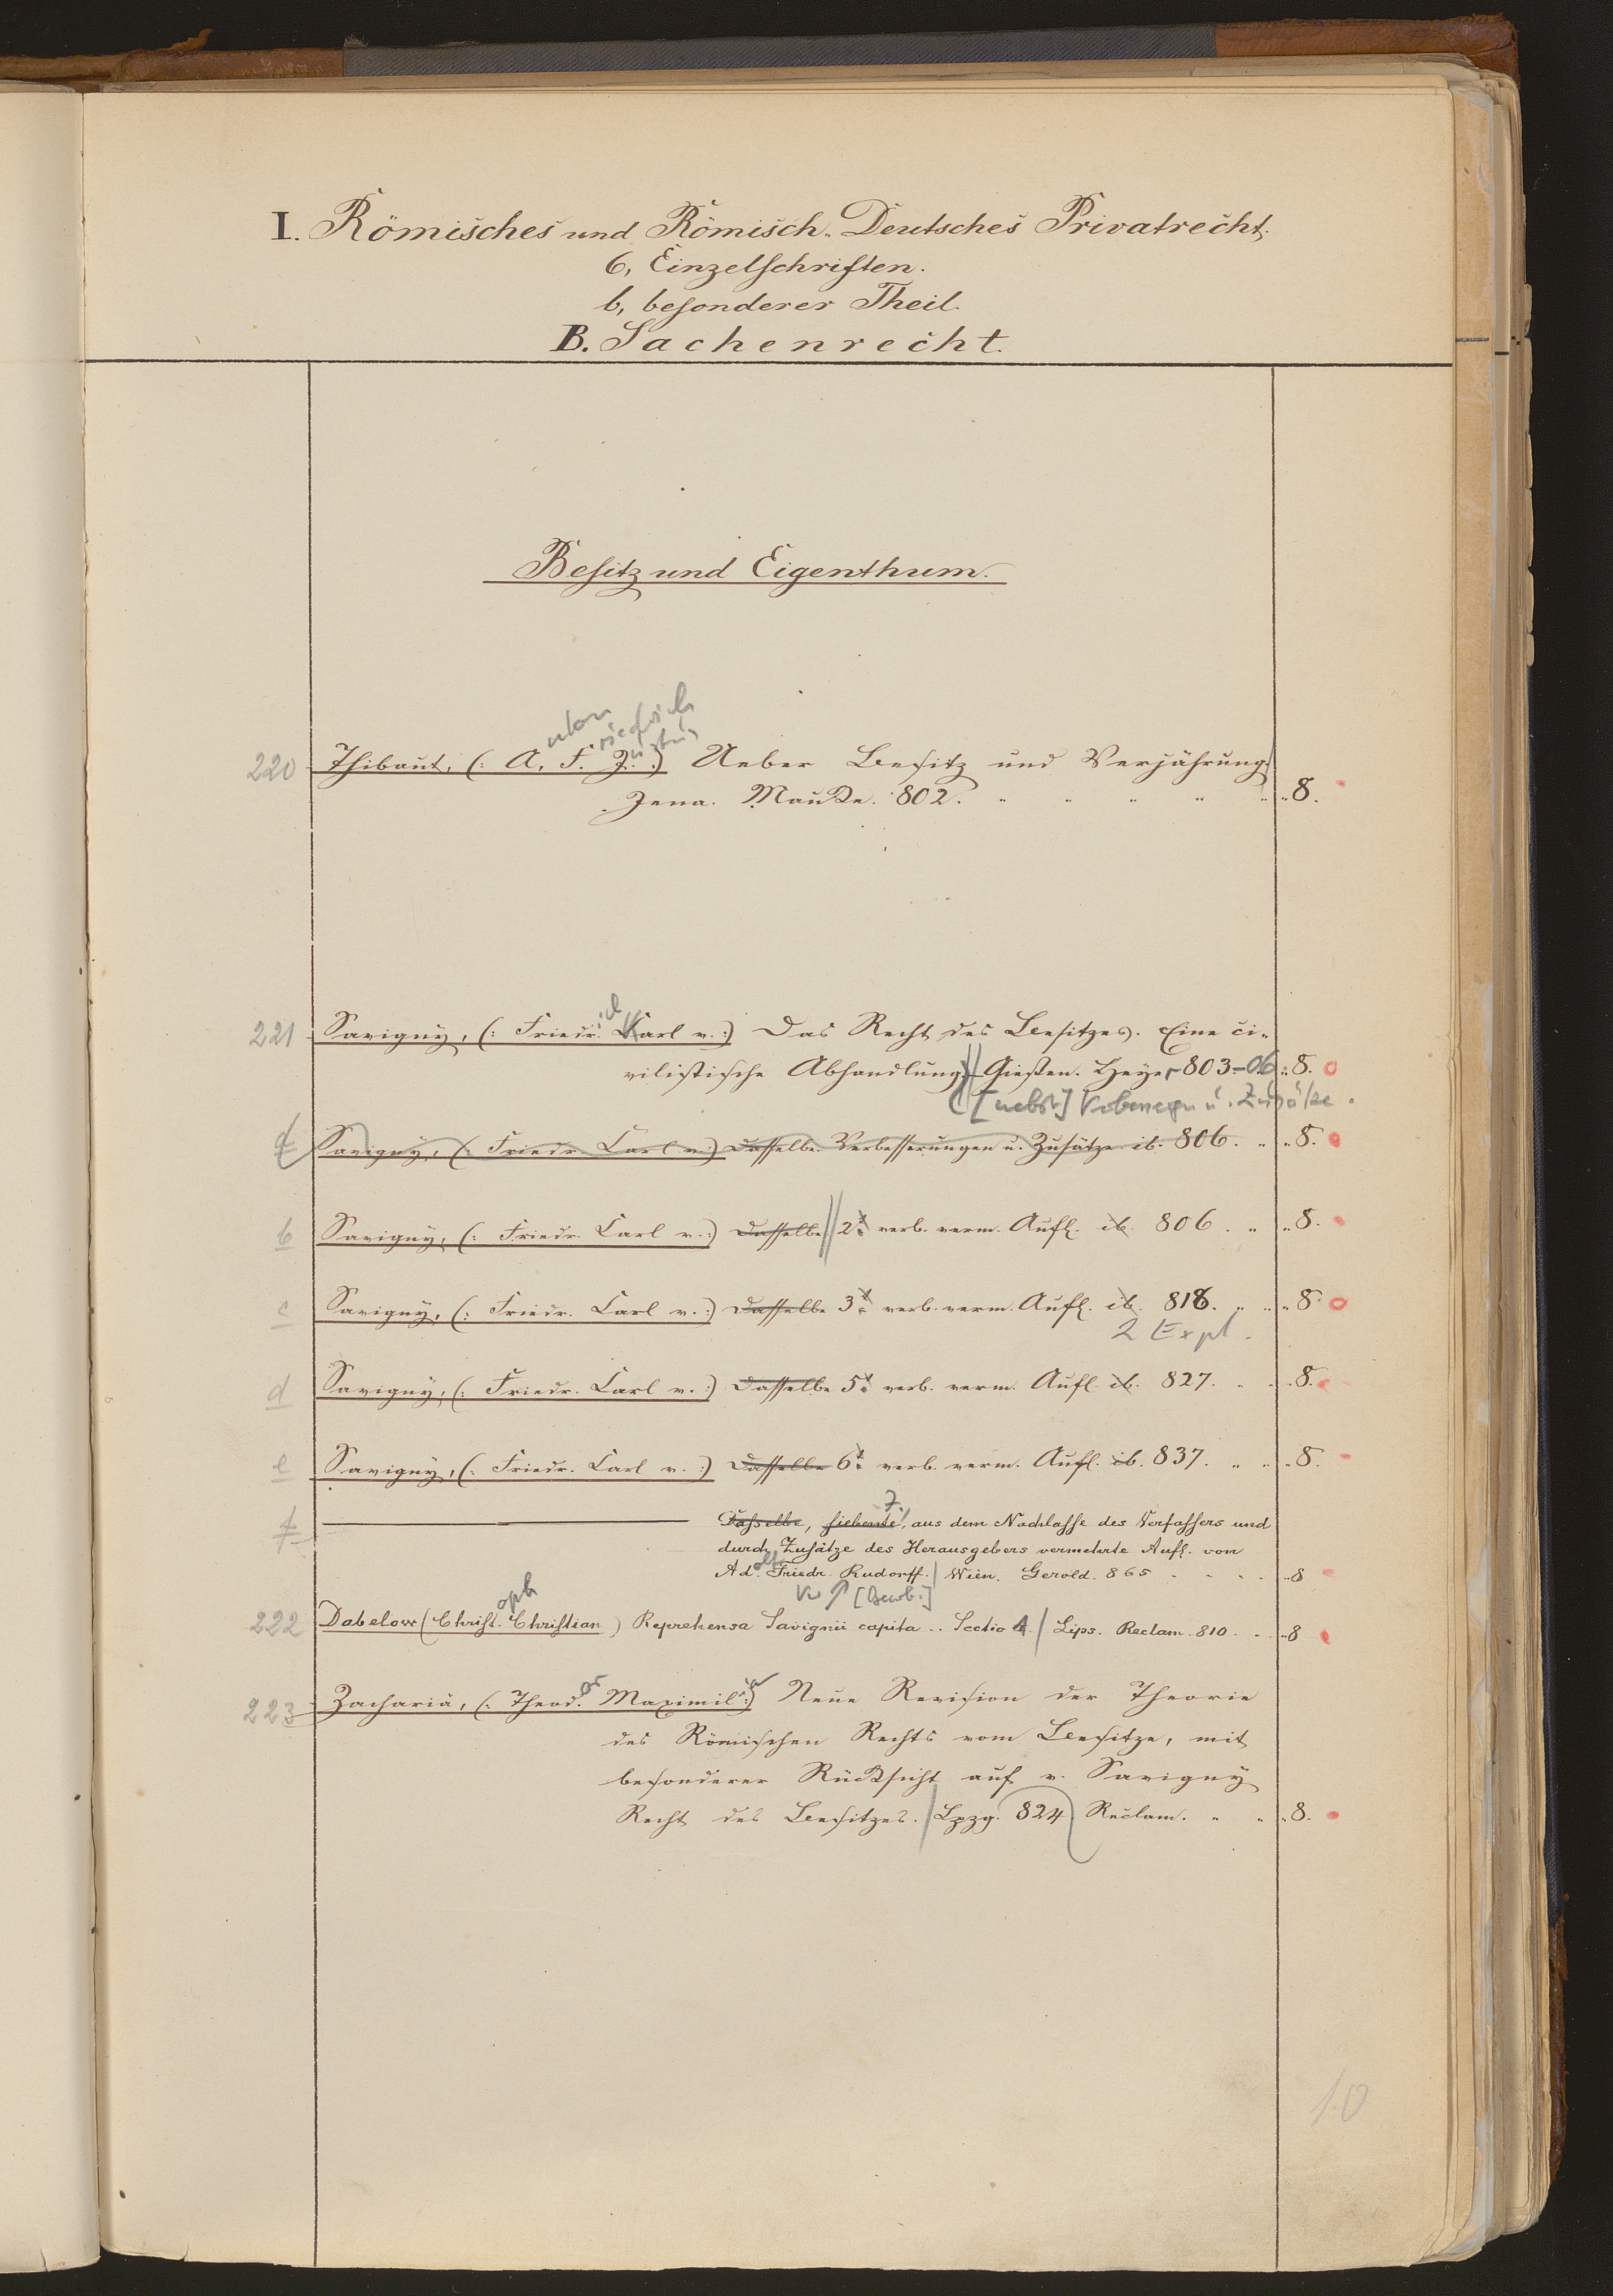 I. Römisches und Römisch-Deutsches Privatrecht.
6, Einzelschriften.
b, besonderer Theil.
B. Sachenrecht.
Besitz und Eigenthum.
nton riedrich ustus
220 Thibaut, (: A. F. J. :) Ueber Besitz und Verjährung.
Jena. Mauke. 802. " " " " " "8.
221 Savigny, (: Friedr. Karl v. :) Das Recht des Besitzes. Eine ci-
vilistische Abhandlung. Gießen. Heyer 803-06 "8.
[nebst] u. Zusätze.
Savigny, (: Friedr. Carl v. :) Dasselbe. Verbesserungen u. Zusätze ib. 806. " "8.
b Savigny, (: Friedr. Carl v. :) Dasselbe 2t verb. verm. Aufl. ib. 806. " "8.
c Savigny, (: Friedr. Carl v. :) Dasselbe 3t verb. verm. Aufl. ib. 818. " " "8.
2 Expl.
d Savigny, (: Friedr. Carl v. :) Dasselbe 5t verb. verm. Aufl. ib. 827. " " "8.
e Savigny, (: Friedr. Carl v. :) Dasselbe 6t verb. verm. Aufl. ib. 837. " " "8.
7.
f Dasselbe, siebente, aus dem Nachlasse des Verfassers und
durch Zusätze des Herausgebers vermehrte Aufl. von
Ad. olf Friedr. Rudorff. Wien. Gerold. 865 " " " " "8
v. ↑ [Bearb.]
oph
222 Dabelow (Christ. Christian) Reprehensa Savignii capita .. Sectio 1. Lips. Reclam. 810. " "8
223 Zachariä, (: Theod. or Maximil. ian :) Neue Revision der Theorie
des Römischen Rechts vom Besitze, mit
besonderer Rücksicht auf v. Savigny
Recht des Besitzes. Lpzg. 824 Reclam. " " "8.
10